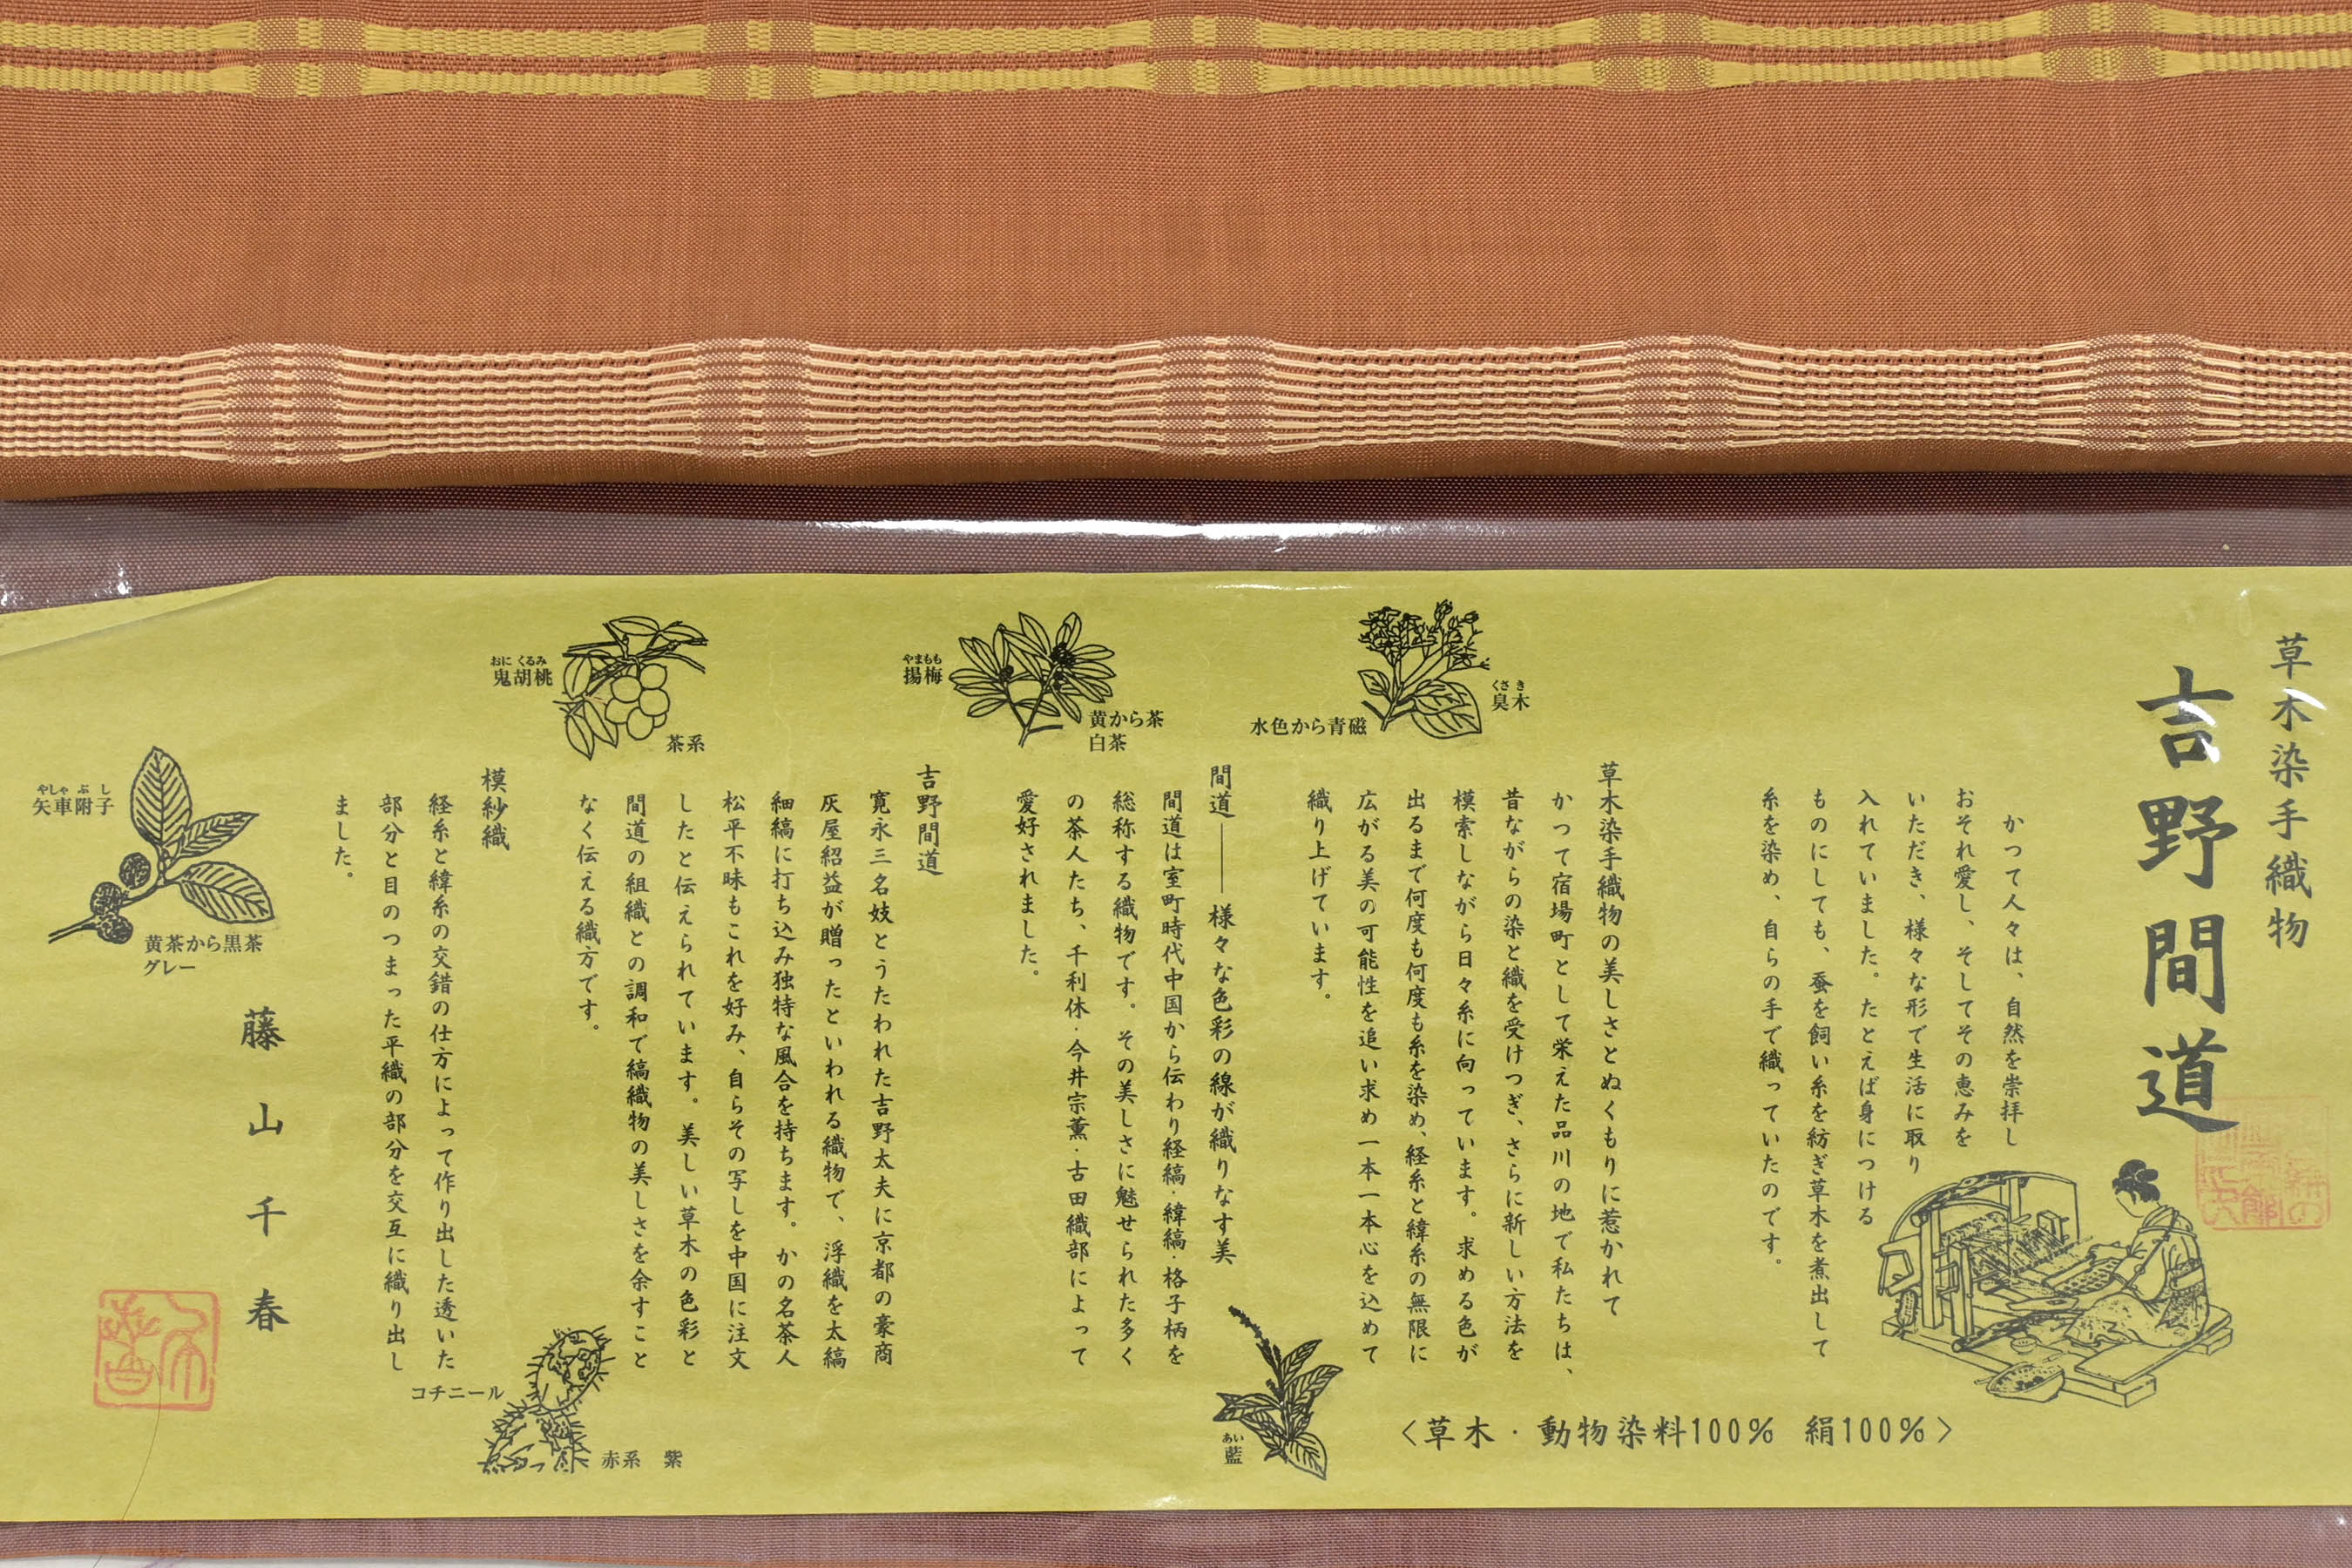 草木染手織物
吉野間道
かつて人々は、自然を崇拝し
おそれ愛し、そしてその恵みを
いただき、様々な形で生活に取り
入れていました。たとえば身につける
ものにしても、蚕を飼い糸を紡ぎ草木を煮出して
糸を染め、自らの手で織っていたのです。
草木染手織物の美しさとぬくもりに惹かれて
かつて宿場町として栄えた品川の地で私たちは、
昔ながらの染と織を受けつぎ、さらに新しい方法を
模索しながら日々糸に向っています。求める色が
出るまで何度も何度も糸を染め、経糸と緯糸の無限に
広がる美の可能性を追い求め一本一本心を込めて
織り上げています。
〈草木・動物染料100% 絹100%〉
くさき
臭木
水色から青磁
あい
藍
間道――様々な色彩の線が織りなす美
間道は室町時代中国から伝わり経縞・緯縞・格子柄を
総称する織物です。その美しさに魅せられた多く
の茶人たち、千利休・今井宗薫・古田織部によって
愛好されました。
やまもも
揚梅
黄から茶
白茶
吉野間道
寛永三名妓とうたわれた吉野太夫に京都の豪商
灰屋紹益が贈ったといわれる織物で、浮織を太縞
細縞に打ち込み独特な風合を持ちます。かの名茶人
松平不昧もこれを好み、自らその写しを中国に注文
したと伝えられています。美しい草木の色彩と
間道の組織との調和で縞織物の美しさを余すこと
なく伝える織方です。
おにくるみ
鬼胡桃
茶系
模紗織
経糸と緯糸の交錯の仕方によって作り出した透いた
部分と目のつまった平織の部分を交互に織り出し
ました。
コチニール
赤系 紫
やしゃぶし
矢車附子
黄茶から黒茶
グレー
藤山千春